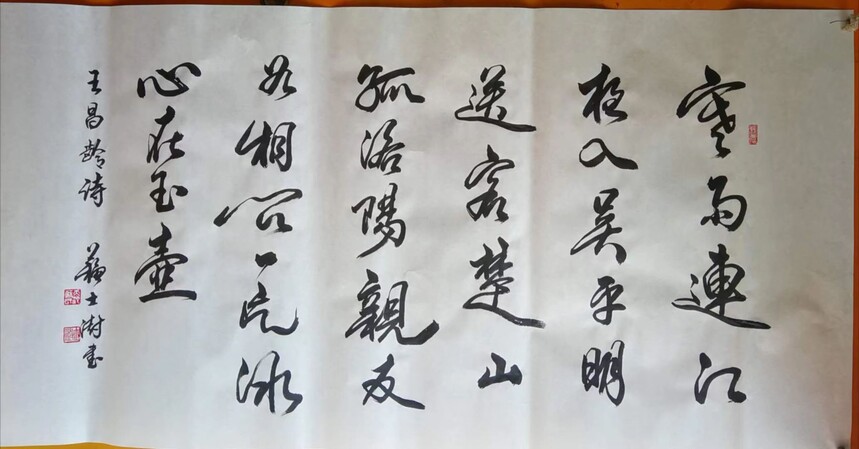 寒雨連江
夜入吴平明
送客楚山
孤洛陽親友
如相问一片冰
心在玉壺
王昌龄诗 蘇士澍书